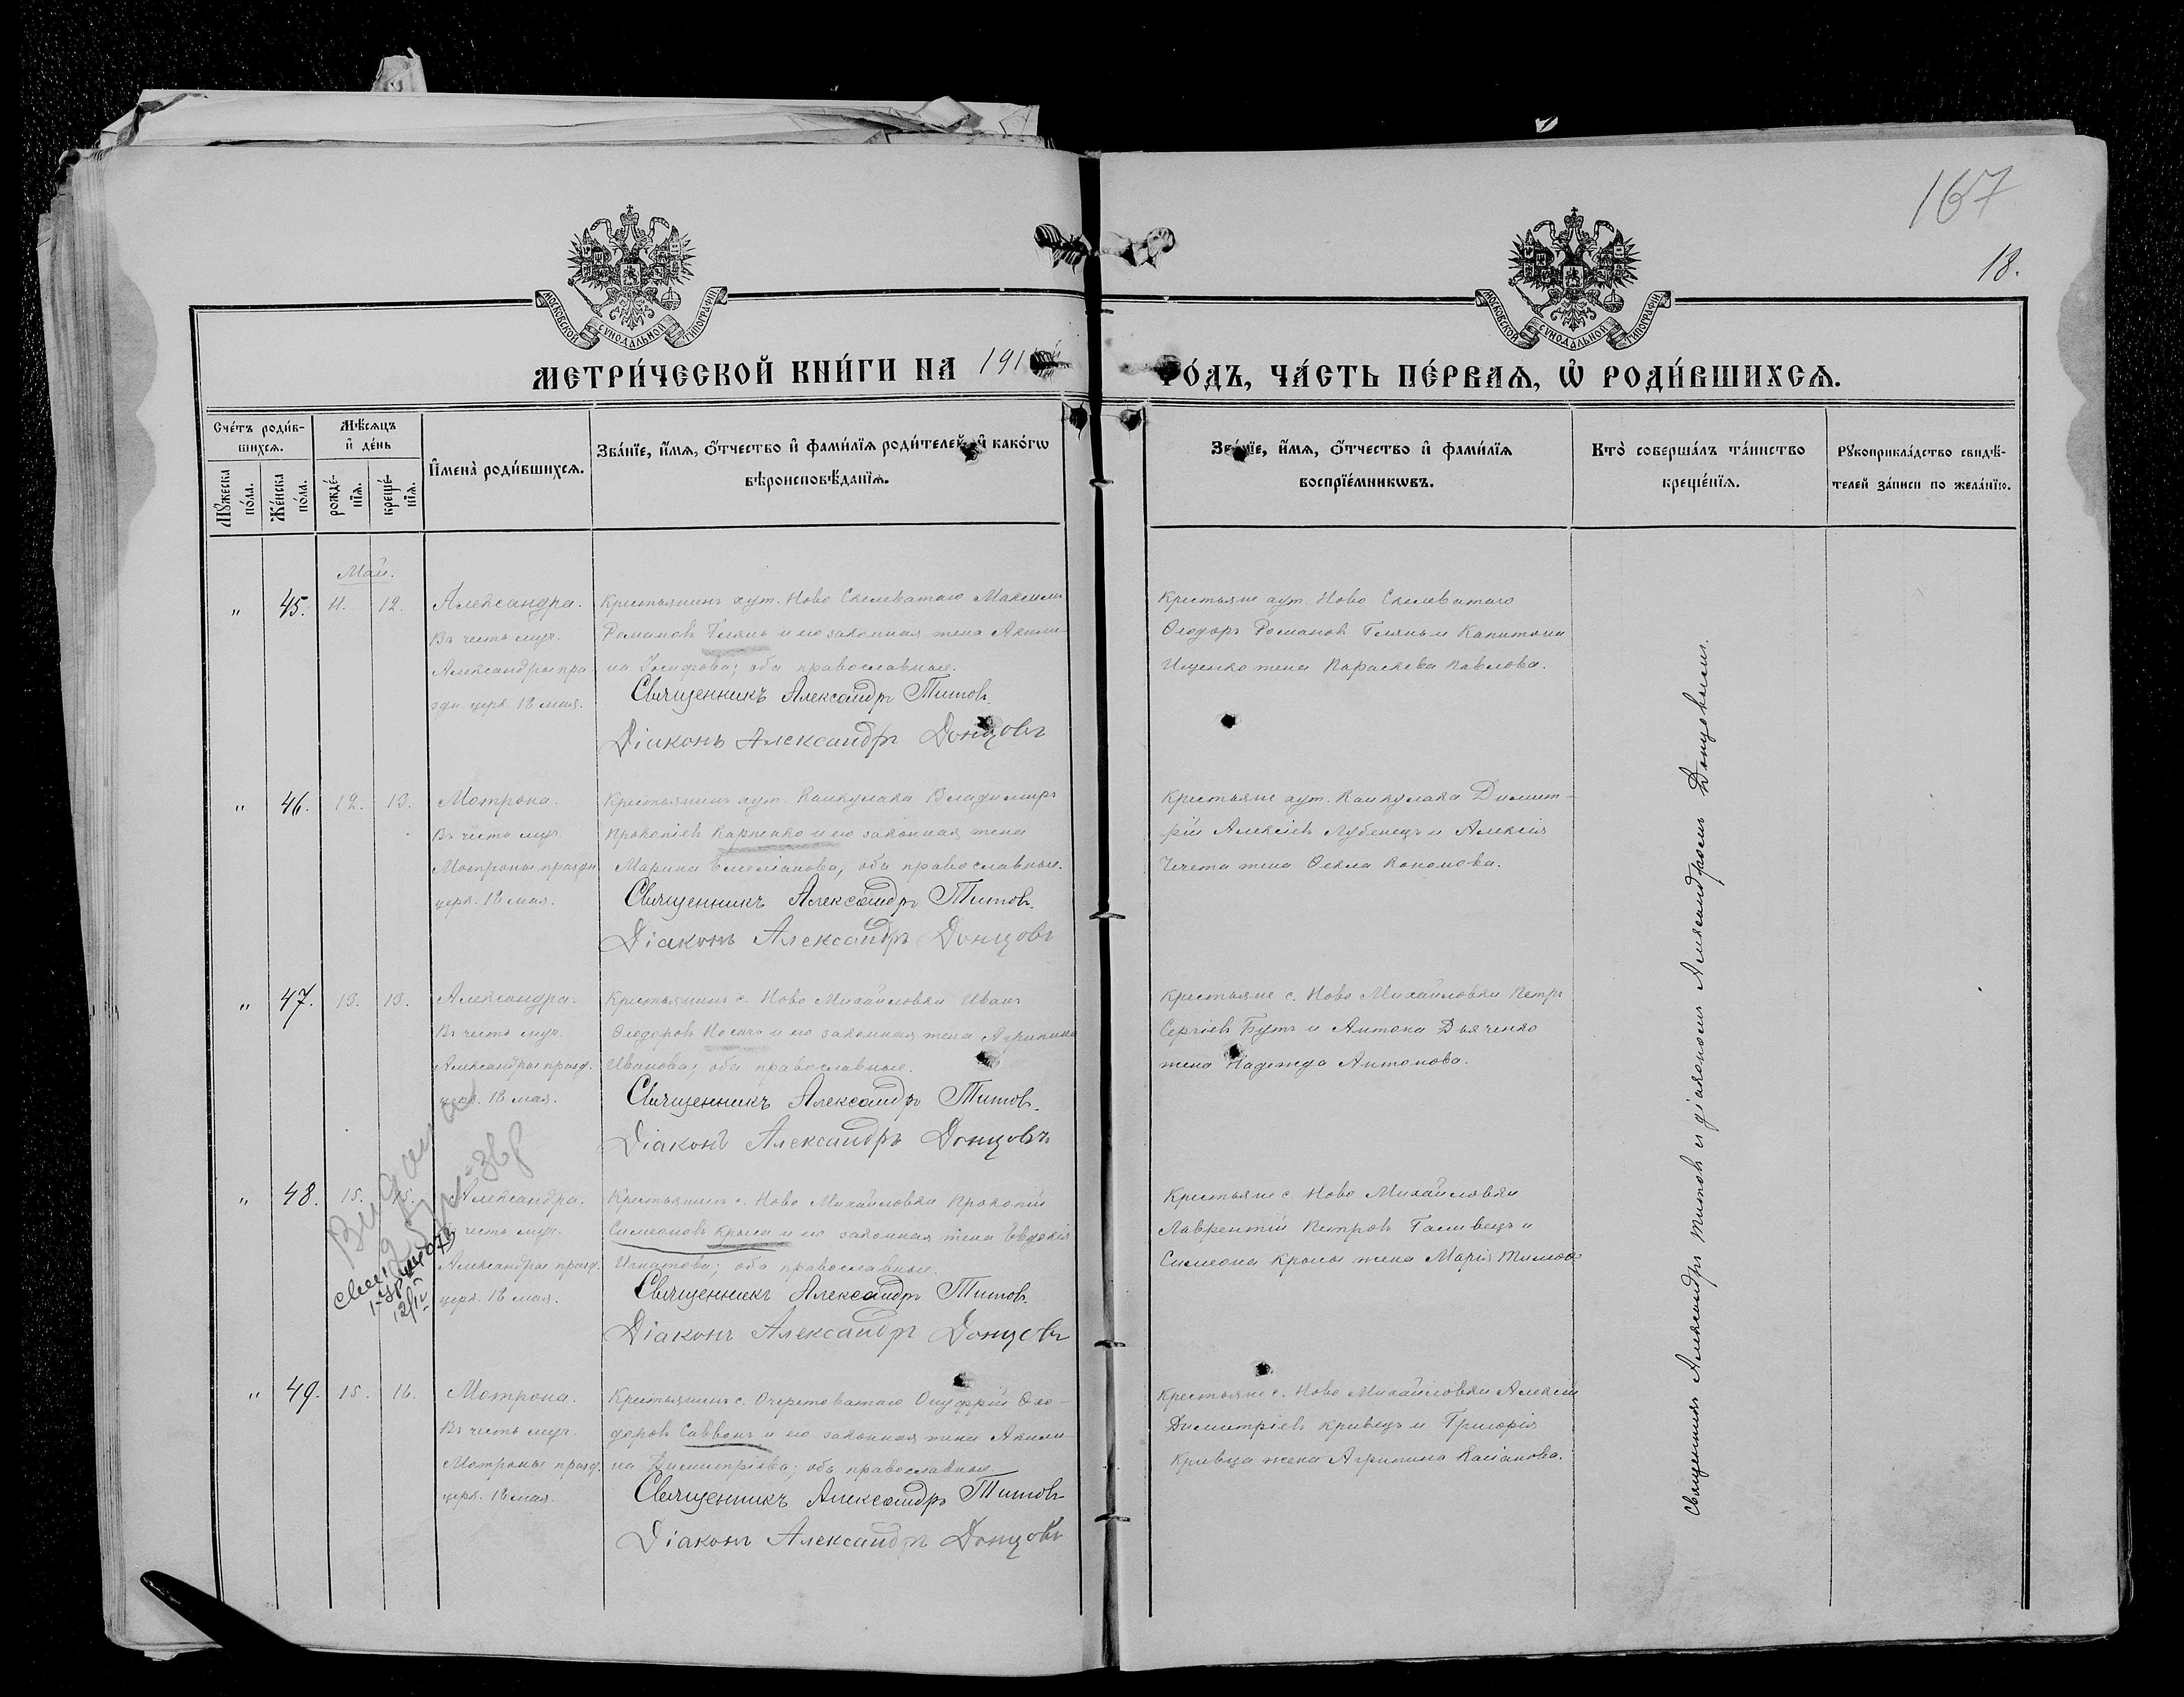 167
18.
МОСКОВСКОЙ СѴНОДАЛЬНОЙ ТИПОГРАФІИ
МОСКОВСКОЙ СѴНОДАЛЬНОЙ ТИПОГРАФІИ
МЕТРИ́ЧЕСКОЙ КНИ́ГИ НА 191
ГО́ДЪ, ЧА́СТЬ ПЕ́РВАѦ, Ѡ РОДИ́ВШИХСѦ.
Сче́тъ роди́в-
шихсѧ.
Мѹ́жеска по́ла.
Же́нска по́ла.
Мѣ́сѧцъ
и҆ де́нь
рожде́-
нїѧ.
креще́-
нїѧ.
И҆мена̀ роди́вшихсѧ.
Зва́нїе, и҆́мѧ, ѻ҆́тчество и҆ фами́лїѧ роди́телей, и҆ како́гѡ
вѣроисповѣ́данїѧ.
Зва́нїе, и҆́мѧ, ѻ҆́тчество и҆ фами́лїѧ
воспрїе́мникѡвъ.
Кто̀ соверша́лъ та́инство
креще́нїѧ.
Рѹкоприкла́дство свидѣ́-
телей за́писи по жела́нїю.
Май.
" 45. 11. 12. Александра.
Въ честь муч.
Александры пра-
здн. церк. 18 мая.
Крестьянинъ хут. Ново Скелеватаго Максимъ
Романовъ и его законная жена Акили-
на Іосифова; оба православные.
Священникъ Александръ Титовъ.
Діаконъ Александръ Донцовъ
Крестьяне хут. Ново Скелеватаго
Ѳеодоръ Романовъ и Капитона
Ищенко жена Параскева Павлова.
" 46. 12. 13. Мотрона.
Въ честь муч.
Мотроны праздн.
церк. 18 мая.
Крестьянинъ хут. Канкулака Владимиръ
Прокопіевъ Карпенко и его законная жена
Марина Емеліанова; оба православные.
Священникъ Александръ Титовъ.
Діаконъ Александръ Донцовъ
Крестьяне хут. Канкулака Димит-
рій Алексіевъ Лубенецъ и Алексія
Чечета жена Ѳекла Кононова.
" 47. 13. 13. Александра.
Въ честь муч.
Александры празд.
церк. 18 мая.
Крестьянинъ с. Ново Михайловки Иванъ
Ѳеодоровъ Носачъ и его законная жена Агрипина
Иванова; оба православные.
Священникъ Александръ Титовъ.
Діаконъ Александръ Донцовъ
Крестьяне с. Ново Михайловки Петръ
Сергіевъ Бутъ и Антона Дьяченко
жена Надежда Антонова.
" 48. 15. 15. Александра.
Въ честь муч.
Александры празд.
церк. 18 мая.
Крестьянинъ с. Ново Михайловки Прокопій
Симеоновъ Крыса и его законная жена Евдокія
Игнатова; оба православные.
Священникъ Александръ Титовъ.
Діаконъ Александръ Донцовъ
Крестьяне с. Ново Михайловки
Лаврентій Петровъ Галивецъ и
Симеона Крысы жена Марія
12/IV
" 49. 15. 16. Мотрона.
Въ честь муч.
Мотроны празд.
церк. 18 мая.
Крестьянинъ с. Очеретоватаго Онуфрій Ѳео-
доровъ Саввонъ и его законная жена Акили-
на Димитріева; оба православные.
Священникъ Александръ Титовъ
Діаконъ Александръ Донцовъ
Крестьяне с. Ново Михайловки Алексій
Димитріевъ Кривецъ и Григорія
Кривца жена Агрипина Касіанова.
Священникъ Александръ Титовъ съ діакономъ Александромъ Донцовымъ.